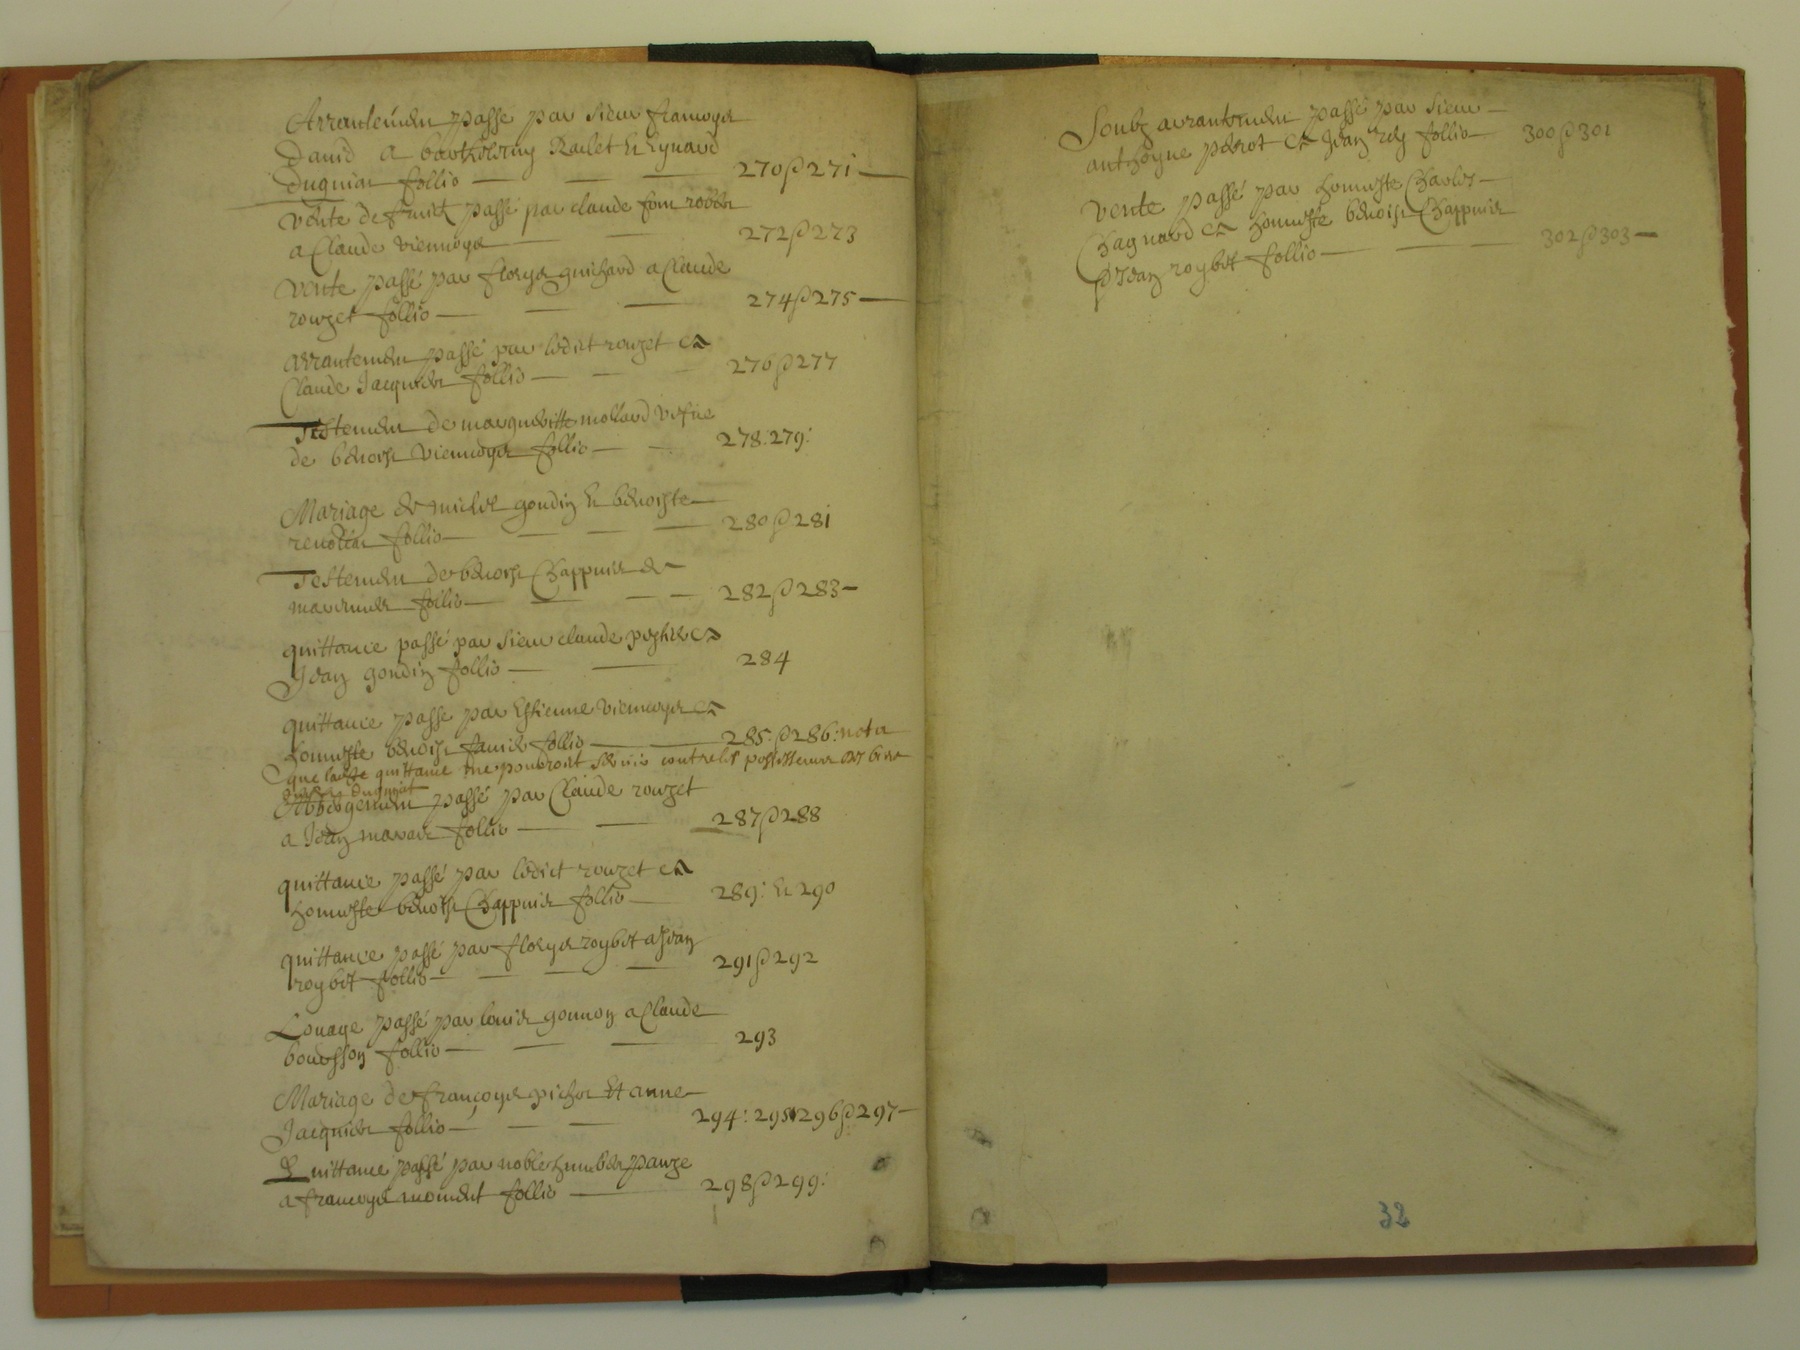 Arrantemen passe par sieur francoys
David a barthelemy Raclet Et Eynard
follio 270 & 271
Vente de fruict passé par claude
a Claude viennoys 272 & 273
Vente passé par florys guichard a Claude
rouzet follio 274 & 275
arrantemen passé par ledict rouzet et
Claude Jacquier follio 276 & 277
Testemen de margueritte mollard vefve
de benoist Viennoys follio 278: 279:
Mariage de michel goudin Et benoiste
follio 280 & 281
Testemen de benoist Chappuis
follio 282 & 283
quittance passé par sieur claude et
Jean goudin follio 284
quittance passe par Estienne viennoys et
honneste benoist follio 285: & 286: nota
que quittance ne pourroit servir contre les possesseurs
Abbergemen passé par Claude rouzet
a Jean follio 287 & 288
quittance passé par ledict rouzet et
honneste benoist Chappuis follio 289: Et 290
quittance passé par florys roybet a Jean
roybet follio 291 & 292
Louage passé par louis gonnon a Claude
follio 293
Mariage de francoys pichon Et anne
Jacquier follio 294: 295 296 & 297
Quittance passé par noble humber pauze
a francoys follio 298 & 299:
Soubz arrantemen passé par sieur
anthoyne perrot et Jean rey follio 300 & 301
Vente passé par honneste Charles
Chagnard et honneste benoist Chappuis
a Jean roybet follio 302 & 303
32